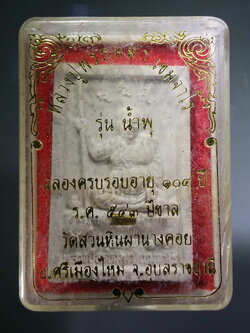 รุ่น น้ำพุ
ฉลองครบรอบอายุ ๑๐๔ ปี
ร.ศ. ปีขาล
วัดสวนหินผานางคอย
อ.ศรีเมืองใหม่ จ.อุบลราชธานี